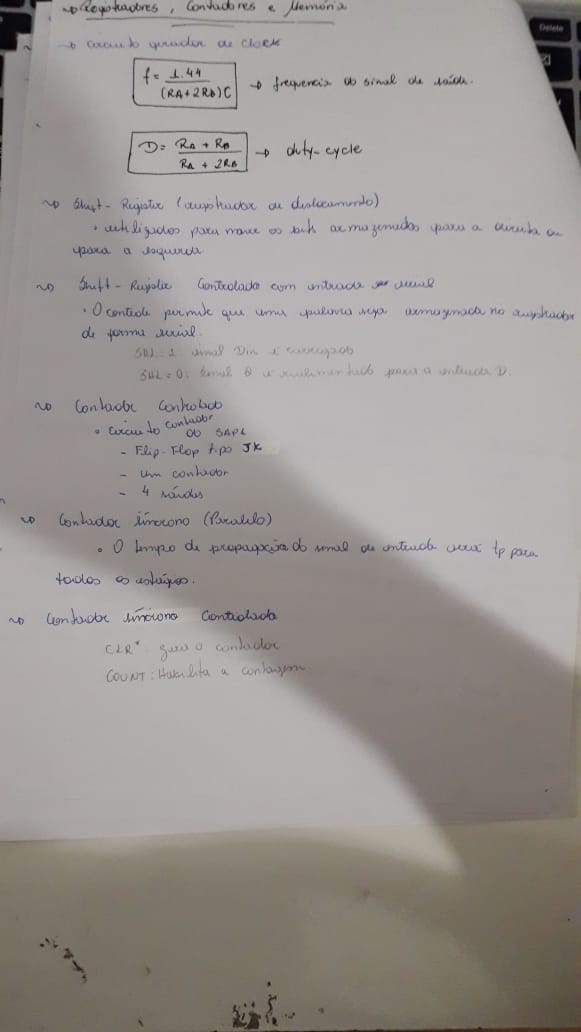 Registradores, Contadores e Memória
→ circuito gerador de clock
f = 1.44 / (RA+2RB)C → frequencia do sinal de saída.
D = RA + RB / RA + 2RB → duty-cycle
Shift-Register (registrador de deslocamento)
• utilizados para mover os bits armazenados para a direita ou
para a esquerda
Shift-Register Controlado com entrada serial
• O controle permite que uma palavra seja armazenada no registrador
de forma serial.
SHL = 1 sinal Din é carregado
SHL = 0: sinal Q é realimentado para a entrada D.
Contador Controlado
• circuito contador
do SAP1
- Flip-Flop tipo JK
- um contador
- 4 saídas
Contador síncrono (Paralelo)
• O tempo de propagação do sinal de entrada será tp para
todos os estágios.
Contador síncrono Controlado
CLR* zera o contador
COUNT: Habilita a contagem
Delete